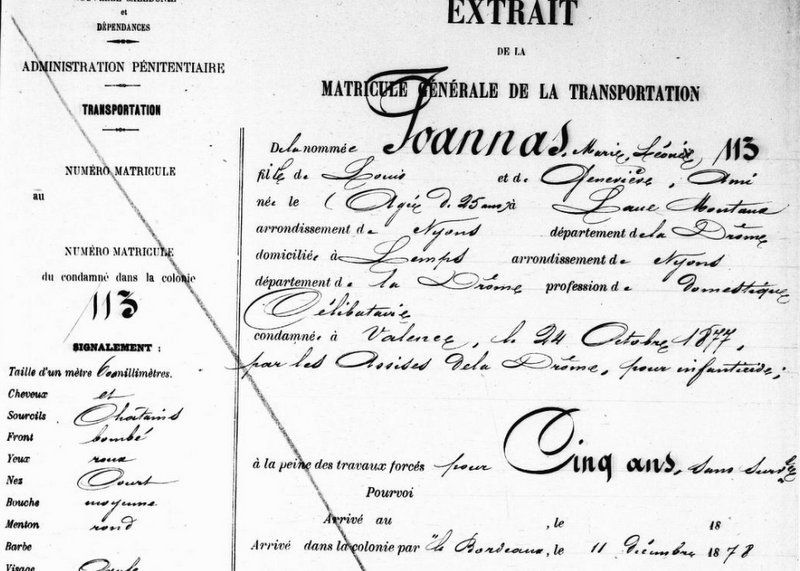 NOUVELLE CALÉDONIE
et
DÉPENDANCES
ADMINISTRATION PÉNITENTIAIRE
TRANSPORTATION
NUMÉRO MATRICULE
au
NUMÉRO MATRICULE
du condamné dans la colonie
113
SIGNALEMENT :
Taille d'un mètre millimètres.
Cheveux et
Sourcils Chatains
Front bombé
Yeux roux
Nez Court
Bouche moyenne
Menton rond
Barbe
Visage Ovale
EXTRAIT
DE LA
MATRICULE GÉNÉRALE DE LA TRANSPORTATION
De la nommée Joannas, Marie, Léonie, 113
fille de Louis et de Geneviève, Ami
née le (Agée de 25 ans) à Montaux
arrondissement de Nyons département de la Drôme
domiciliée à Lemps arrondissement de Nyons
département de la Drôme profession de domestique
Célibataire
condamnée à Valence, le 24 Octobre 1877,
par les Assises de la Drôme, pour infanticide;
à la peine des travaux forcés pour Cinq ans, sans
Pourvoi
Arrivé au , le 18
Arrivé dans la colonie par "le Bordeaux, le 11 décembre 1878